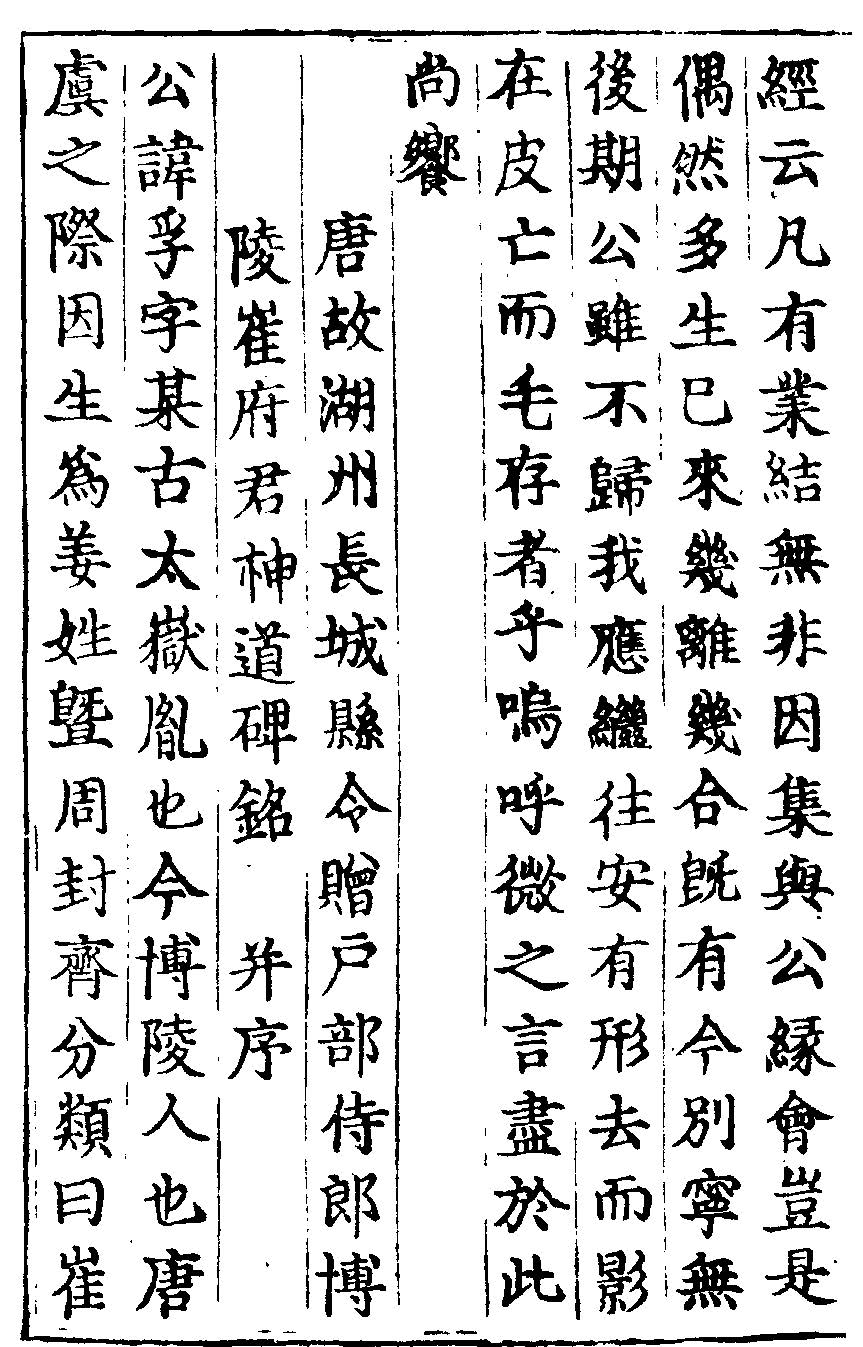 經云凡有業結無非因集與公緣會豈是
偶然多生已來幾離幾合旣有今別寧無
後期公雖不歸我應繼往安有形去而影
在皮亡而毛存者乎嗚呼微之言盡於此
尚饗
唐故湖州長城縣令贈戶部侍郎博
陵崔府君神道碑銘 并序
公諱孚字某古太嶽胤也今博陵人也唐
虞之際因生爲姜姓曁周封齊分類曰崔